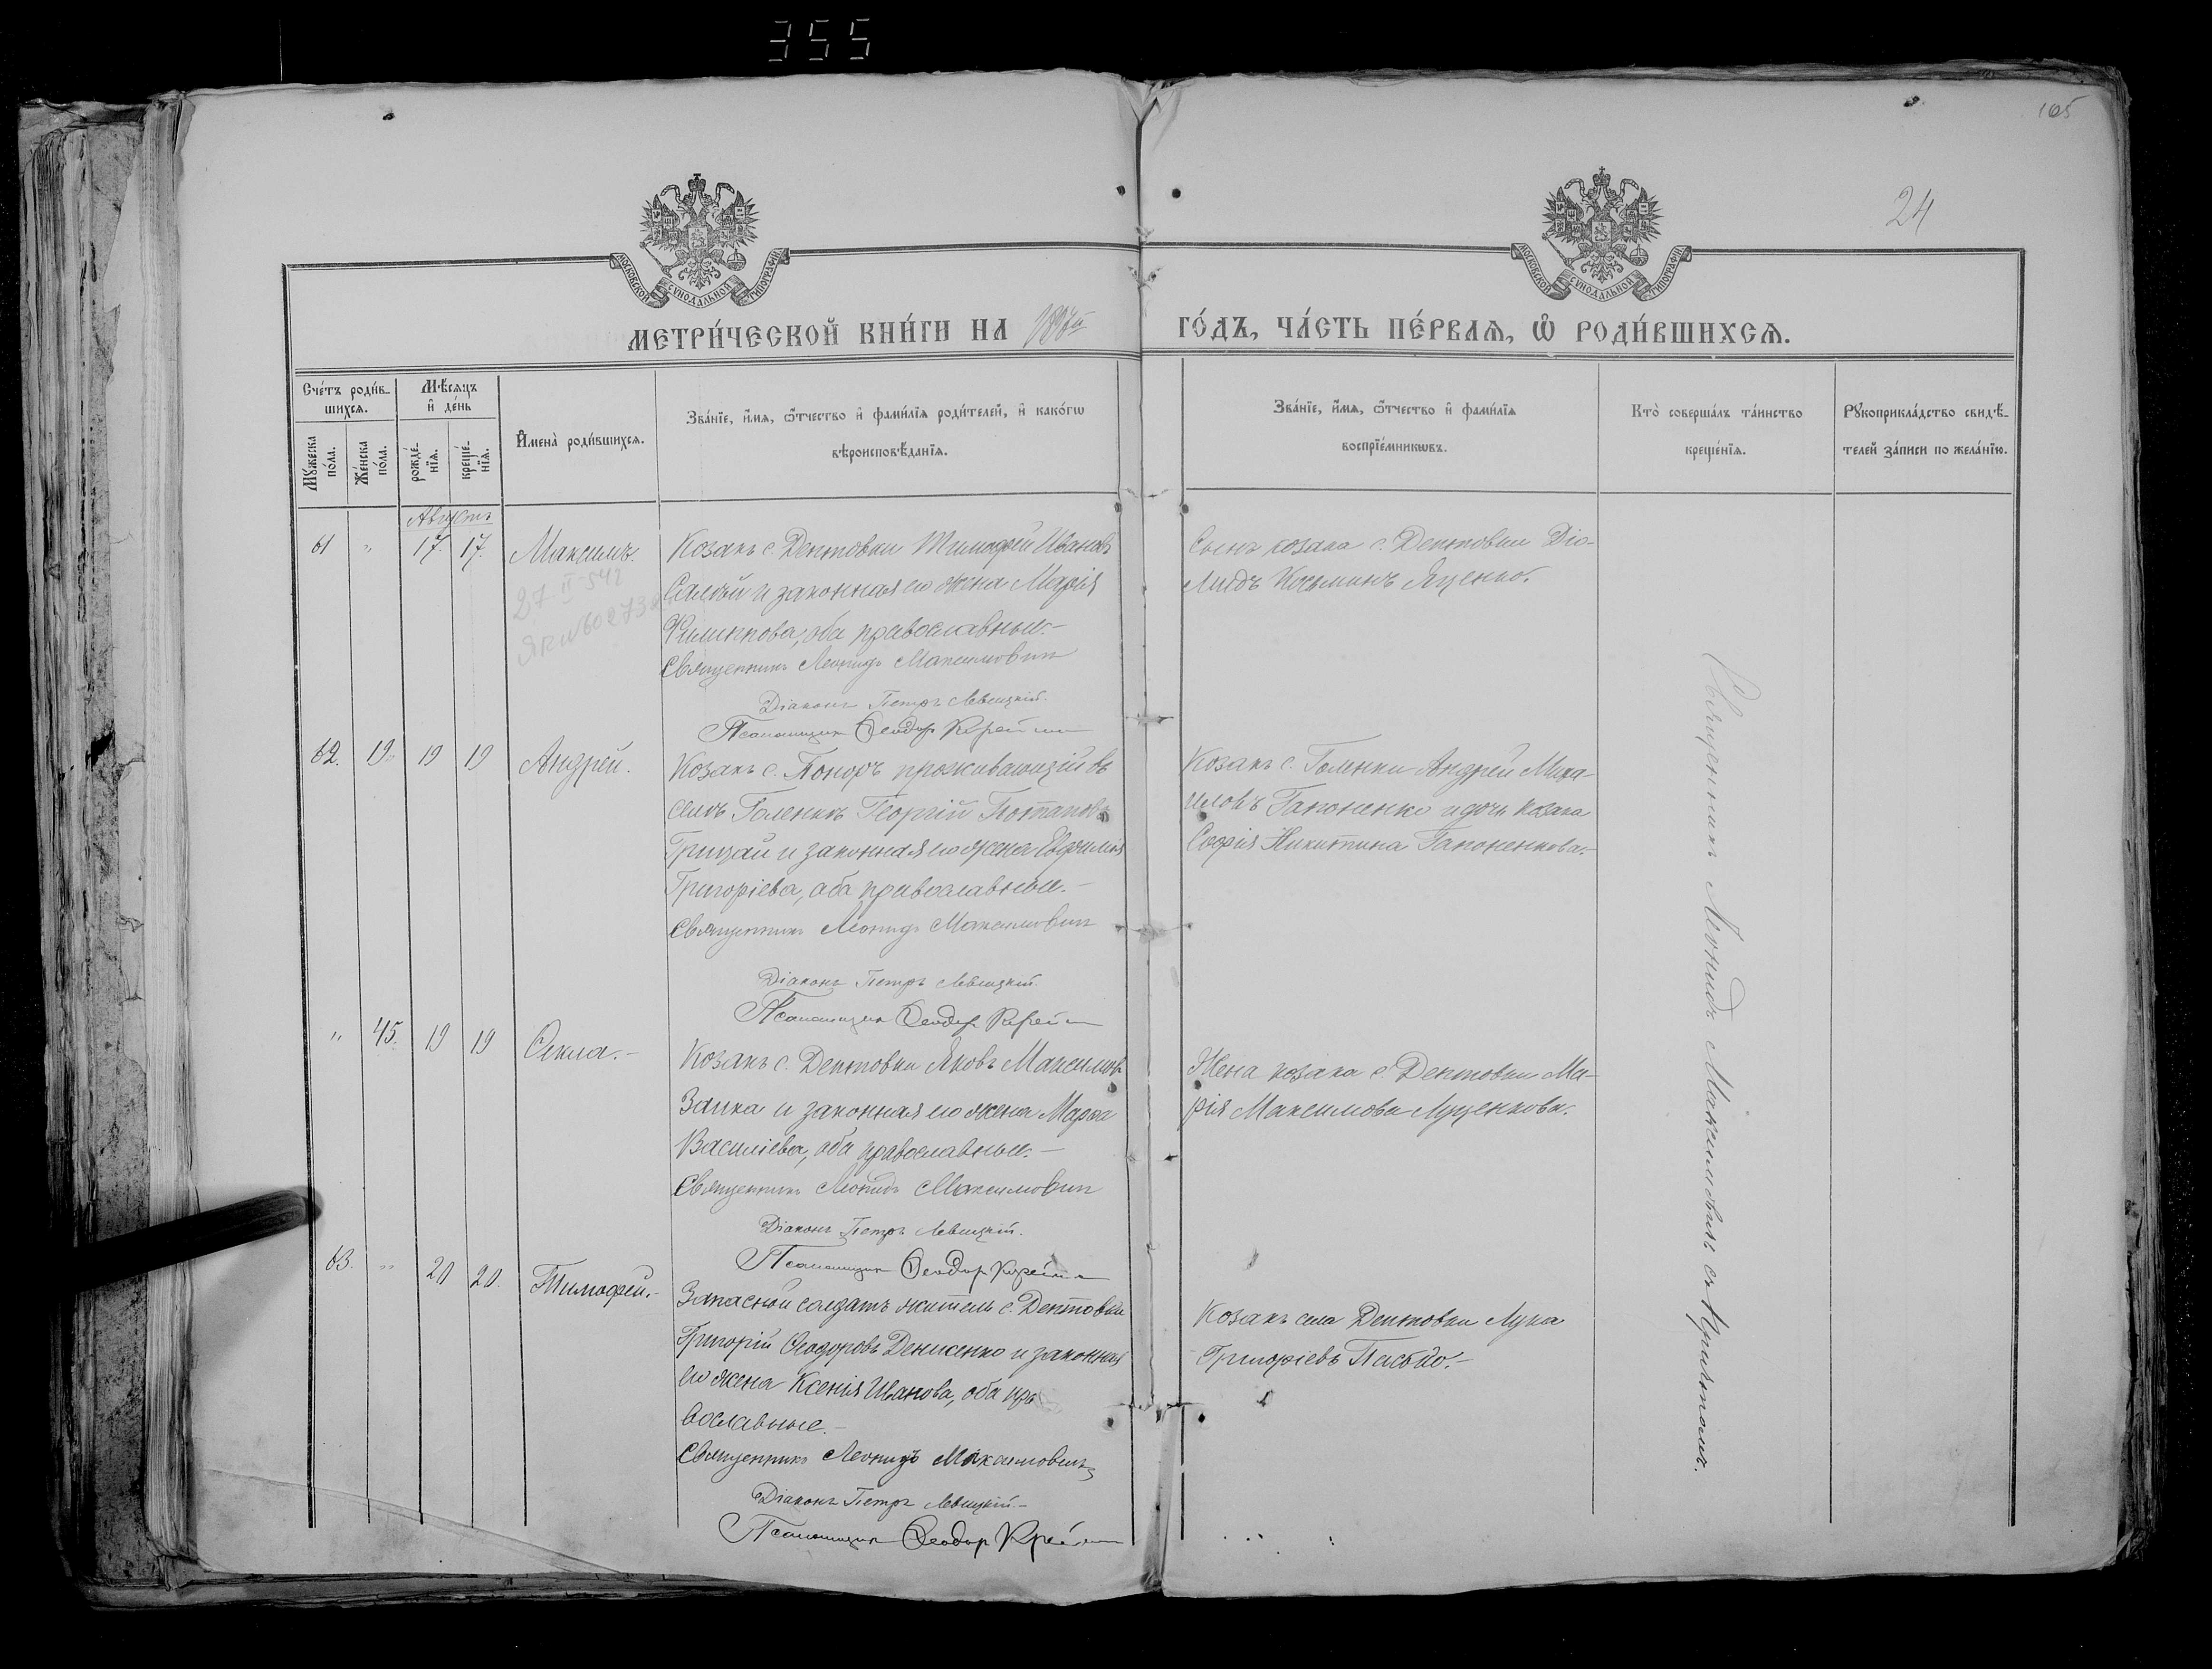 355
165
24
МОСКОВСКОЙ СУНОДАЛЬНОЙ ТИПОГРАФІИ
МОСКОВСКОЙ СУНОДАЛЬНОЙ ТИПОГРАФІИ
МЕТРИ́ЧЕСКОЙ КНИ́ГИ НА ГО́ДЪ, ЧА́СТЬ ПЕ́РВАѦ, Ѡ҆ РОДИ́ВШИХСѦ.
Сче́тъ роди́в-
шихсѧ.
Мꙋжеска по́ла.
Же́нска по́ла.
Мѣ́сѧцъ
и҆ де́нь
рожде́-
нїѧ.
креще́-
нїѧ.
И҆мена̀ роди́вшихсѧ.
Зва́нїе, и҆́мѧ, ѻ҆́тчество и҆ фами́лїѧ роди́телей, и҆ како́гѡ
вѣроисповѣ́данїѧ.
Зва́нїе, и҆́мѧ, ѻ҆́тчество и҆ фами́лїѧ
воспрїе́мникѡвъ.
Кто̀ соверша́лъ та́инство
креще́нїѧ.
Рꙋкоприкла́дство свидѣ́-
телей за́писи по жела́нїю.
Августъ
61 " 17. 17. Максимъ.
27 II 542
Козакъ с. Дептовки Тимофей Ивановъ
и законная его жена Марія
Филиппова, оба православные.-
Священникъ Леонидъ Максимович
Діаконъ Петръ Левицкій.
Псаломщик Ѳеодор
Сынъ козака с. Дептовки Діо-
мидъ Косьминъ Яценко.
62. 19 19 Андрей.
Козакъ с. Поноръ проживающій въ
селѣ Голенкѣ Георгій Потаповъ
Грицай и законная его жена Евфимія
Григоріева, оба православные.-
Священникъ Леонидъ Максимович
Діаконъ Петръ Левицкій.
Псаломщик Ѳеодор
Козакъ с. Голенки Андрей Миха-
иловъ Гапоненко и дочь козака
Софія Никитина Гапоненкова.-
" 45. 19 19 Ѳекла.-
Козакъ с. Дептовки Яковъ Максимов
Заика и законная его жена Марѳа
Василіева, оба православные.-
Священникъ Леонидъ Максимович
Діаконъ Петръ Левицкій.
Псаломщик Ѳеодор
Жена козака с. Дептовки Ма-
рія Максимова Луценкова.
63. " 20 20. Тимофей.-
Запасной солдатъ житель с. Дептовки
Григорій Ѳеодоровъ Денисенко и законная
его жена Ксенія Иванова, оба пра
вославные.-
Священникъ Леонидъ Максимович
Діаконъ Петръ Левицкій.-
Псаломщик Ѳеодор
Козакъ села Дептовки Лука
Григоріевъ
Священникъ Леонидъ Максимовичъ съ причтомъ.